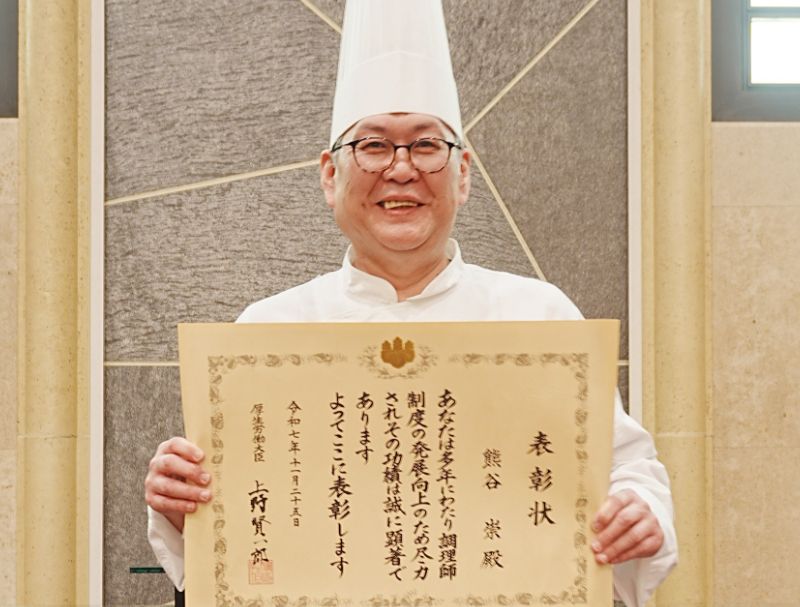 表彰状
熊谷 崇 殿
あなたは多年にわたり調理師
制度の発展向上のため尽力
されその功績は誠に顕著で
あります
よってここに表彰します
令和七年十一月二十五日
厚生労働大臣 上野賢一郎